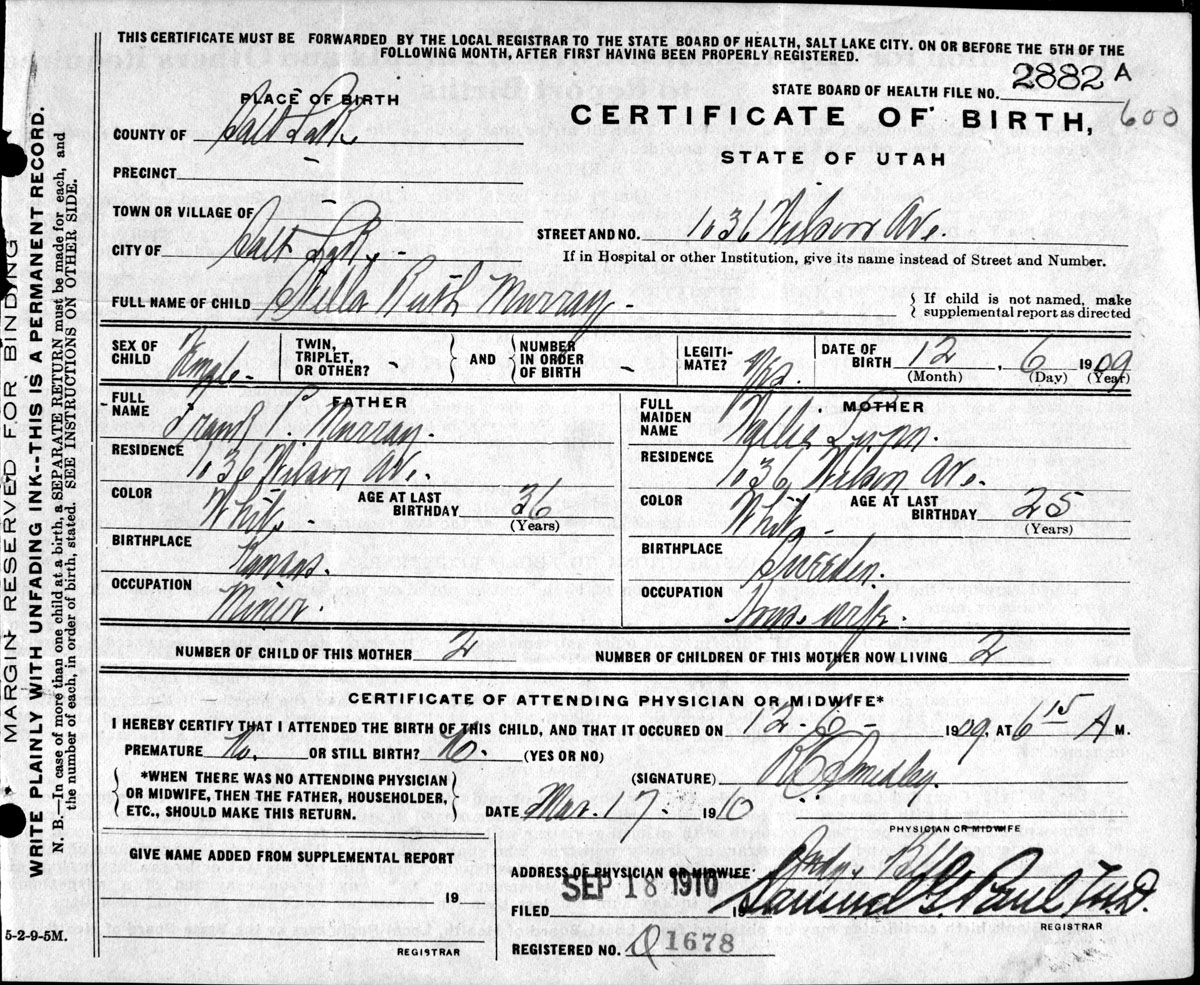 THIS CERTIFICATE MUST BE FORWARDED BY THE LOCAL REGISTRAR TO THE STATE BOARD OF HEALTH, SALT LAKE CITY. ON OR BEFORE THE 5TH OF THE
FOLLOWING MONTH, AFTER FIRST HAVING BEEN PROPERLY REGISTERED.
STATE BOARD OF HEALTH FILE NO. 2882 A
600
CERTIFICATE OF BIRTH,
STATE OF UTAH
PLACE OF BIRTH
COUNTY OF Salt Lake
PRECINCT
TOWN OR VILLAGE OF
CITY OF Salt Lake
STREET AND NO. 1036 Wilson Ave.
If in Hospital or other Institution, give its name instead of Street and Number.
FULL NAME OF CHILD Stella Ruth Murray
If child is not named, make
supplemental report as directed
SEX OF CHILD Female
TWIN, TRIPLET, OR OTHER? AND NUMBER IN ORDER OF BIRTH -
LEGITI-MATE? Yes.
DATE OF BIRTH 12, 6 1909
(Month) (Day) (Year)
FATHER
FULL NAME Frank P. Murray.
RESIDENCE 1036 Wilson Ave.
COLOR White AGE AT LAST BIRTHDAY 36 (Years)
BIRTHPLACE Kansas.
OCCUPATION Miner.
MOTHER
FULL MAIDEN NAME
RESIDENCE 1036 Wilson Ave.
COLOR White AGE AT LAST BIRTHDAY 25 (Years)
BIRTHPLACE Sweeden.
OCCUPATION Housewife.
NUMBER OF CHILD OF THIS MOTHER 2
NUMBER OF CHILDREN OF THIS MOTHER NOW LIVING 2
CERTIFICATE OF ATTENDING PHYSICIAN OR MIDWIFE*
I HEREBY CERTIFY THAT I ATTENDED THE BIRTH OF THIS CHILD, AND THAT IT OCCURED ON 12-6- 1909, AT 6 15 A M.
PREMATURE No. OR STILL BIRTH? No. (YES OR NO)
*WHEN THERE WAS NO ATTENDING PHYSICIAN
OR MIDWIFE, THEN THE FATHER, HOUSEHOLDER,
ETC., SHOULD MAKE THIS RETURN.
(SIGNATURE)
DATE Mar. 17- 1910
PHYSICIAN OR MIDWIFE
GIVE NAME ADDED FROM SUPPLEMENTAL REPORT
19
REGISTRAR
ADDRESS OF PHYSICIAN OR MIDWIFE
SEP 18 1910
FILED 19 Samuel G. Paul
REGISTRAR
REGISTERED NO. 1678
MARGIN RESERVED FOR BINDING
WRITE PLAINLY WITH UNFADING INK--THIS IS A PERMANENT RECORD.
N. B.—In case of more than one child at a birth, a SEPARATE RETURN must be made for each, and
the number of each, in order of birth, stated. SEE INSTRUCTIONS ON OTHER SIDE.
5-2-9-5M.